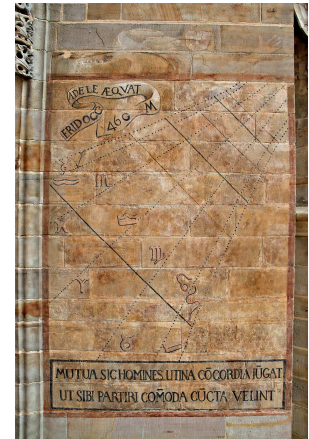 ADELE ÆQVAT
MUTUA SIC HOMINES UTINA CŌCORDIA IŪGAT
UT SIBI PARTIRI COM̄ODA CŪCTA VELINT